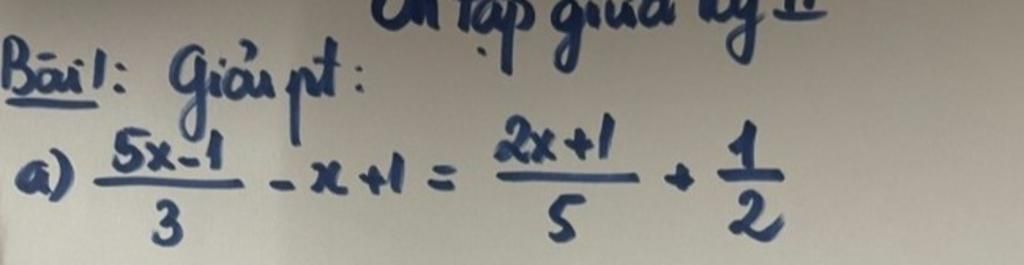 Ôn tập giữa kỳ II
Bài 1: Giải pt:
a) \frac{5x-1}{3} - x + 1 = \frac{2x+1}{5} + \frac{1}{2}